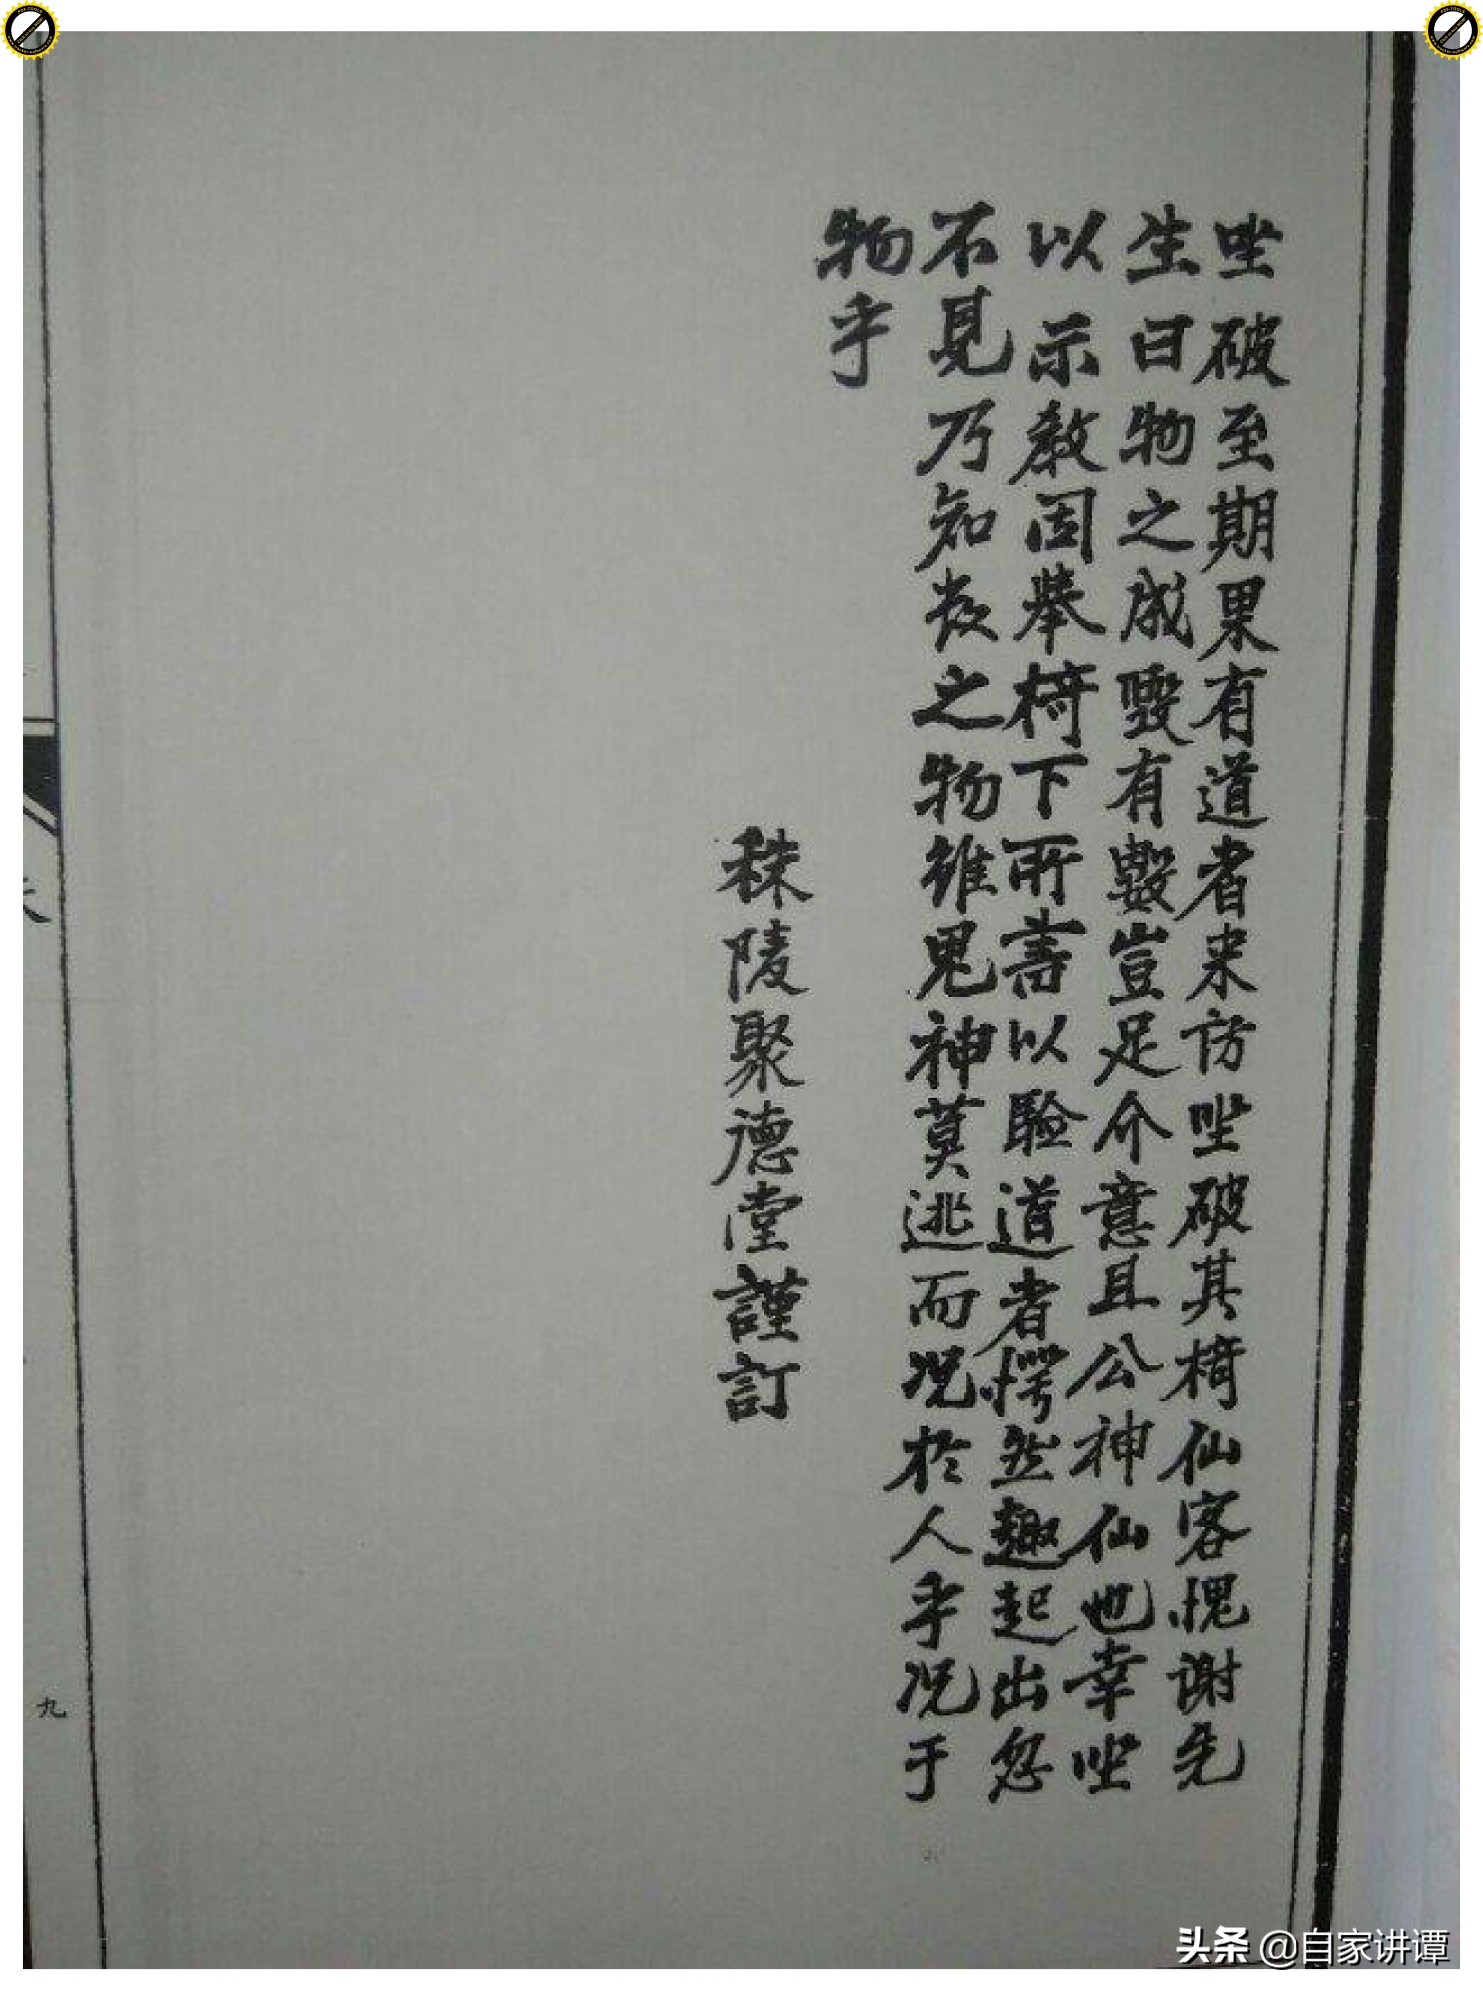 坐破至期果有道者来訪坐破其椅仙客愧謝先
生曰物之成毁有數豈足介意且公神仙也幸坐
以示教因举椅下所書以驗道者愕然趣起出忽
不見乃知數之物雖鬼神莫逃而况於人乎况于
物乎
秣陵聚德堂謹訂
九
头条 @自家讲谭